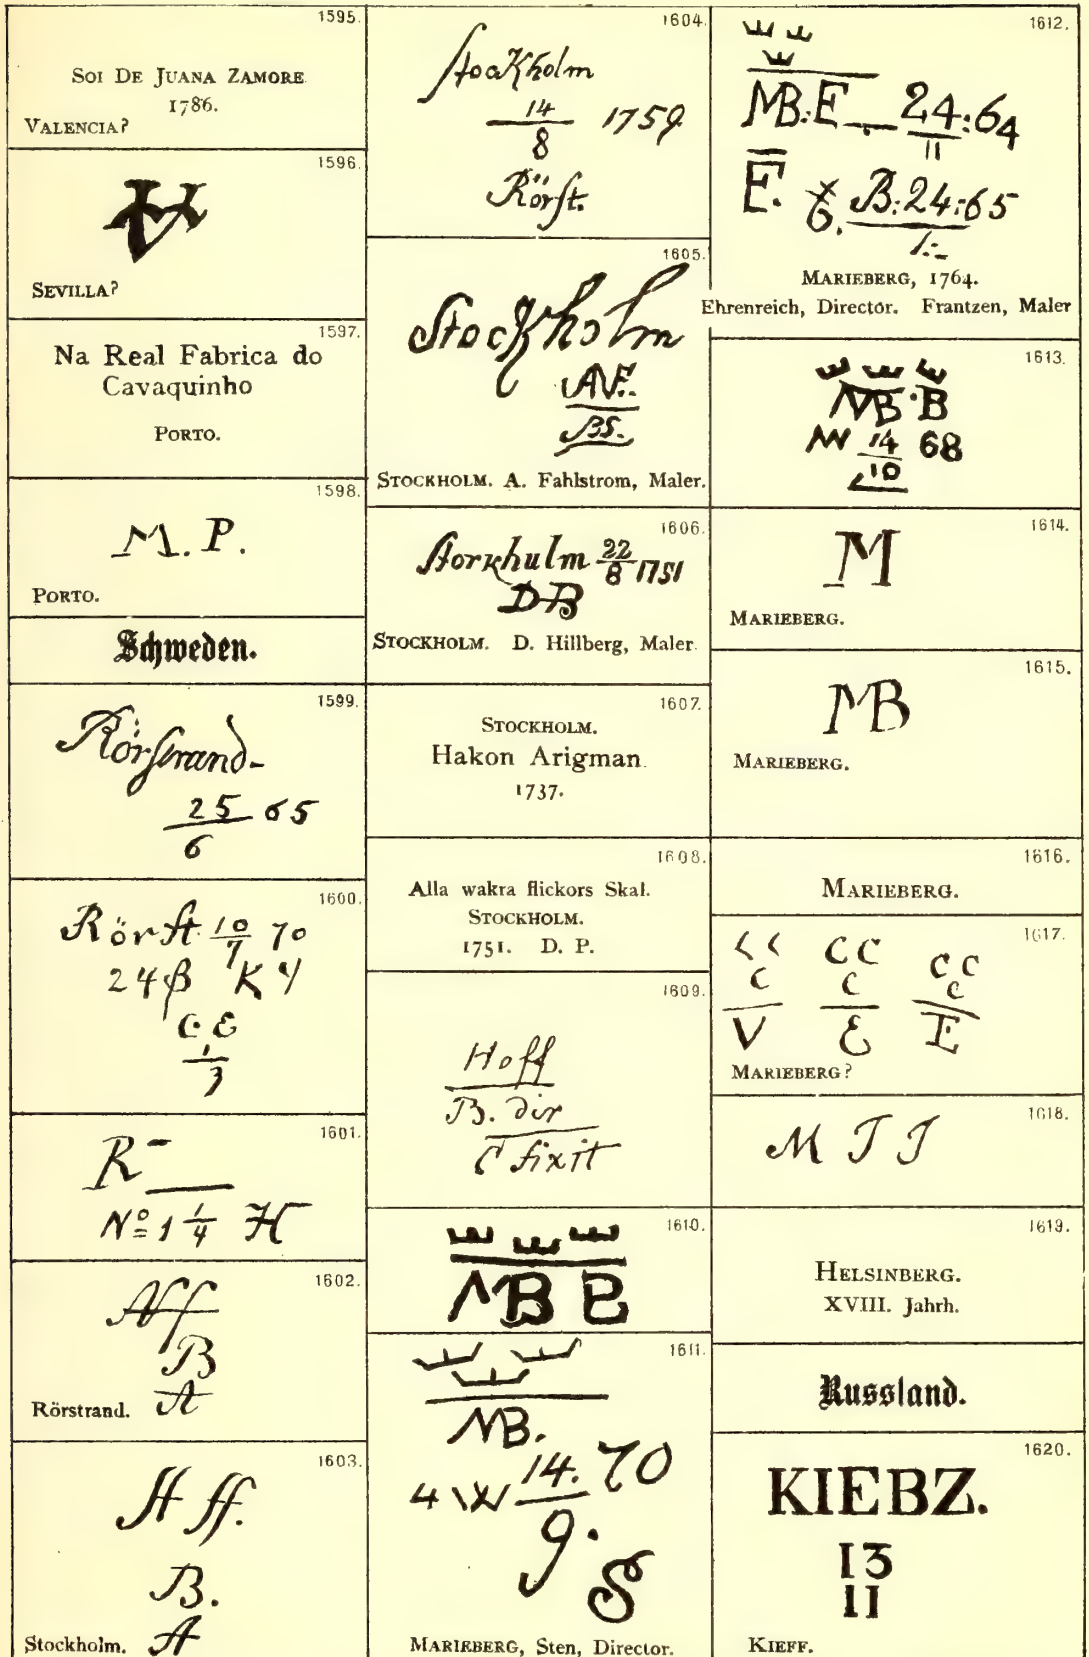 1595.
SOI DE JUANA ZAMORE
1786.
VALENCIA?
1596.
SEVILLA?
1597.
Na Real Fabrica do
Cavaquinho
PORTO.
1598.
M. P.
PORTO.
Schweden.
1599.
Rörstrand-
25 65
6
1600.
Rörst. 10 70
7
24 β K Y
C. E
1
3
1601.
R-
No 1 1/4 H
1602.
B
A
Rörstrand.
1603.
H ff.
B.
A
Stockholm.
1604.
Stockholm
14 1759
8
Rörst.
1605.
Stockholm
AF.
BS.
STOCKHOLM. A. Fahlstrom, Maler.
1606.
Storkhulm 22 1751
8
DB
STOCKHOLM. D. Hillberg, Maler.
1607.
STOCKHOLM.
Hakon Arigman.
1737.
1608.
Alla wakra flickors Skal.
STOCKHOLM.
1751. D. P.
1609.
Hoff
B. dir
C fixit
1610.
MB B
1611.
MB.
4 W 14. 70
9.
S
MARIEBERG, Sten, Director.
1612.
MB:E 24:64
11
E. B:24:65
1:-
MARIEBERG, 1764.
Ehrenreich, Director. Frantzen, Maler
1613.
MB·B
14 68
10
1614.
M
MARIEBERG.
1615.
MB
MARIEBERG.
1616.
MARIEBERG.
1617.
C C C C
C C C
V E E
MARIEBERG?
1618.
M J J
1619.
HELSINBERG.
XVIII. Jahrh.
Russland.
1620.
KIEBZ.
13
11
KIEFF.